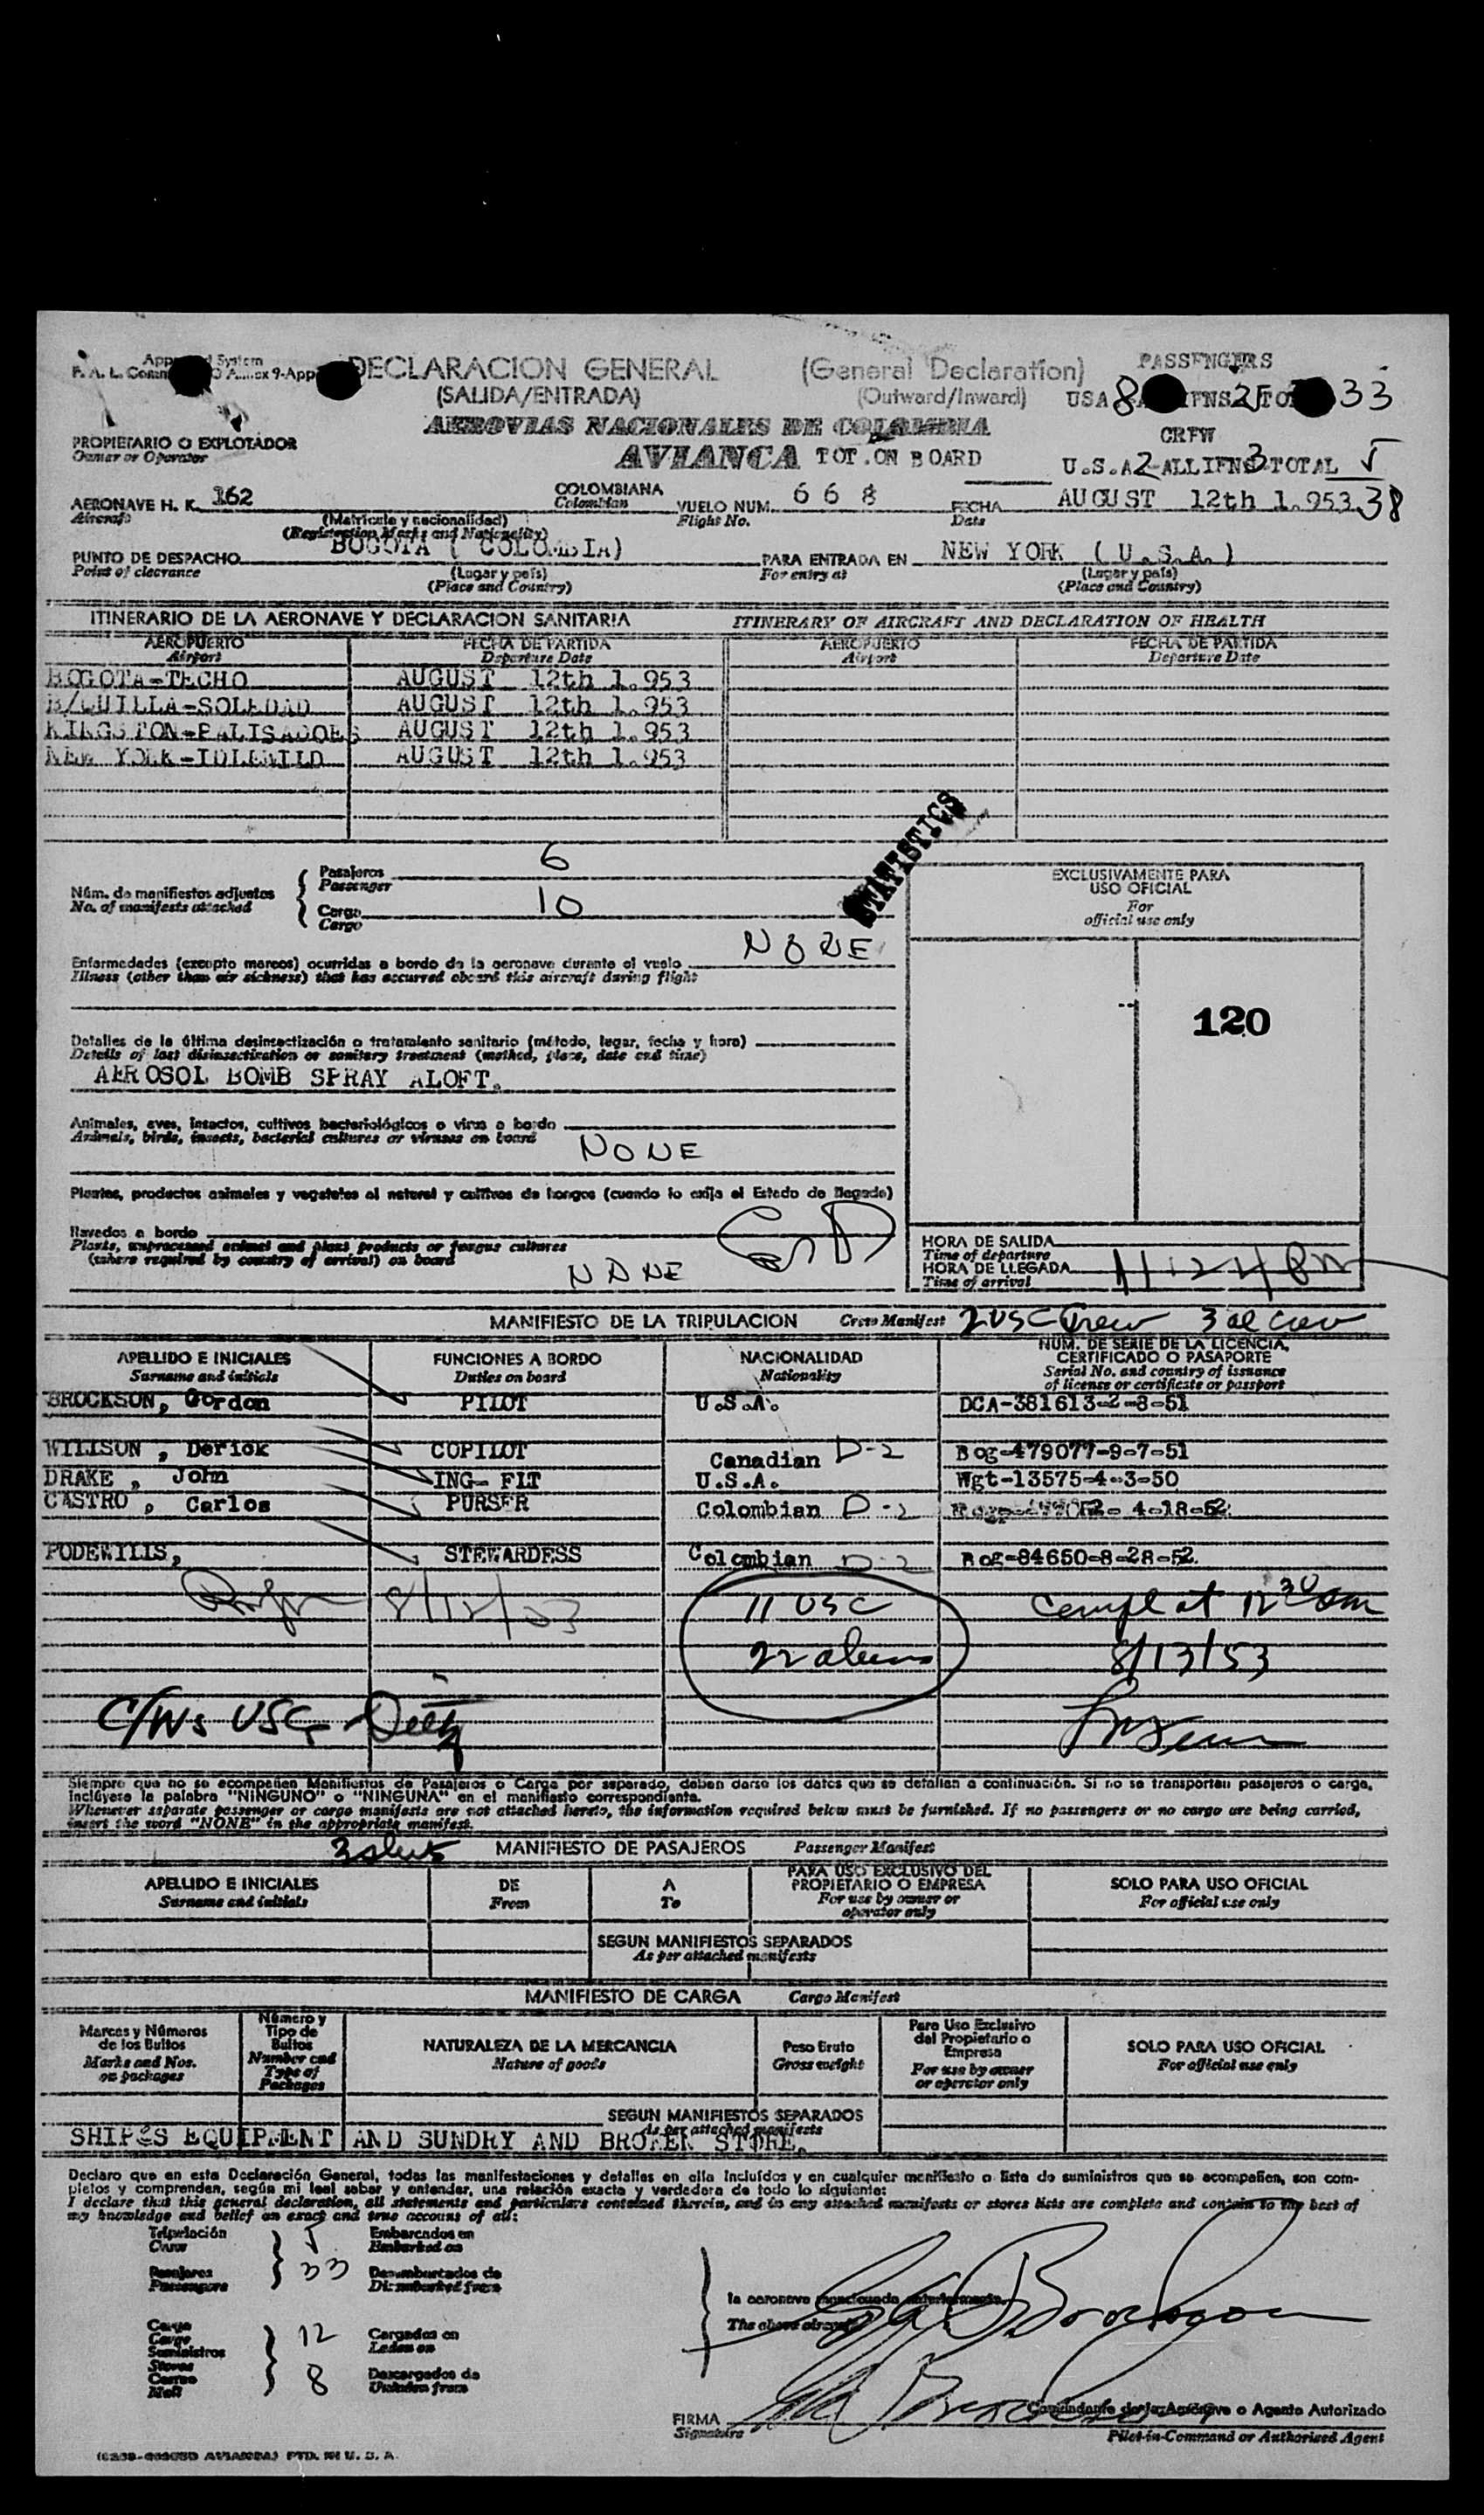 DECLARACION GENERAL (General Declaration) PASSENGERS
(SALIDA/ENTRADA) (Outward/Inward) USA 8 25 33
AEROVIAS NACIONALES DE COLOMBIA
CREW
PROPIETARIO O EXPLOTADOR
Owner or Operator
AVIANCA TOT.ON BOARD U.S.A 2 ALLIENS 3 TOTAL 5
AERONAVE H. K. 162 COLOMBIANA VUELO NUM. 668 FECHA AUGUST 12th 1.953 38
Aircraft Colombian Flight No. Date
(Matrícula y nacionalidad)
(Registration Marks and Nationality)
PUNTO DE DESPACHO BOGOTA ( COLOMBIA) PARA ENTRADA EN NEW YORK (U.S.A.)
Point of clearance (Lugar y país) For entry at (Lugar y país)
(Place and Country) (Place and Country)
ITINERARIO DE LA AERONAVE Y DECLARACION SANITARIA ITINERARY OF AIRCRAFT AND DECLARATION OF HEALTH
AEROPUERTO FECHA DE PARTIDA AEROPUERTO FECHA DE PARTIDA
Airport Departure Date Airport Departure Date
BOGOTA-TECHO AUGUST 12th 1.953
B/QUILLA-SOLEDAD AUGUST 12th 1.953
KINGSTON-PALISADOES AUGUST 12th 1.953
NEW YORK-IDLEWILD AUGUST 12th 1.953
STATISTICS
Núm. de manifiestos adjuntos
No. of manifests attached
Pasajeros 6
Passenger
Carga 10
Cargo
EXCLUSIVAMENTE PARA
USO OFICIAL
For
official use only
120
Enfermedades (excepto mareos) ocurridas a bordo de la aeronave durante el vuelo NONE
Illness (other than air sickness) that has occurred aboard this aircraft during flight
Detalles de la última desinsectización o tratamiento sanitario (método, lugar, fecha y hora)
Details of last disinsectization or sanitary treatment (method, place, date and time)
AEROSOL BOMB SPRAY ALOFT.
Animales, aves, insectos, cultivos bacteriológicos o virus a bordo
Animals, birds, insects, bacterial cultures or viruses on board
NONE
Plantas, productos animales y vegetales al natural y cultivos de hongos (cuando lo exija el Estado de llegada)
llevados a bordo
Plants, unprocessed animal and plant products or fungus cultures
(where required by country of arrival) on board
NONE
HORA DE SALIDA
Time of departure
HORA DE LLEGADA 11:24 PM
Time of arrival
MANIFIESTO DE LA TRIPULACION Crew Manifest 2 USC Crew 3 al Crew
APELLIDO E INICIALES FUNCIONES A BORDO NACIONALIDAD NUM. DE SERIE DE LA LICENCIA, CERTIFICADO O PASAPORTE
Surname and initials Duties on board Nationality Serial No. and country of issuance of license or certificate or passport
BROCKSON, Gordon PILOT U.S.A. DCA-381613-2-8-51
WILLSON, Derick COPILOT Canadian D-2 Bog-479077-9-7-51
DRAKE, John ING- FLT U.S.A. Wgt-13575-4-3-50
CASTRO, Carlos PURSER Colombian D-2 4-18-52
PODEWILIS, STEWARDESS Colombian D-2 Bog-84650-8-28-52
8/12/53 11 USC Compl at 12 30 am
22 aliens 8/13/53
C/Ws USC
Siempre que no se acompañen Manifiestos de Pasajeros o Carga por separado, deben darse los datos que se detallan a continuación. Si no se transportan pasajeros o carga,
inclúyase la palabra "NINGUNO" o "NINGUNA" en el manifiesto correspondiente.
Whenever separate passenger or cargo manifests are not attached hereto, the information required below must be furnished. If no passengers or no cargo are being carried,
insert the word "NONE" in the appropriate manifest.
MANIFIESTO DE PASAJEROS Passenger Manifest
APELLIDO E INICIALES DE A PARA USO EXCLUSIVO DEL PROPIETARIO O EMPRESA SOLO PARA USO OFICIAL
Surname and initials From To For use by owner or operator only For official use only
SEGUN MANIFIESTOS SEPARADOS
As per attached manifests
MANIFIESTO DE CARGA Cargo Manifest
Marcas y Números de los Bultos Número y Tipo de Bultos NATURALEZA DE LA MERCANCIA Peso Bruto Para Uso Exclusivo del Propietario o Empresa SOLO PARA USO OFICIAL
Marks and Nos. on packages Number and Type of Packages Nature of goods Gross weight For use by owner or operator only For official use only
SEGUN MANIFIESTOS SEPARADOS
As per attached manifests
SHIP'S EQUIPMENT AND SUNDRY AND BROKEN STORE.
Declaro que en esta Declaración General, todas las manifestaciones y detalles en ella incluídos y en cualquier manifiesto o lista de suministros que se acompañen, son com-
pletos y comprenden, según mi leal saber y entender, una relación exacta y verdadera de todo lo siguiente:
I declare that this general declaration, all statements and particulars contained therein, and in any attached manifests or stores lists are complete and contain to the best of
my knowledge and belief an exact and true account of all:
Tripulación 5 Embarcados en
Crew Embarked on
Pasajeros 33 Desembarcados de
Passengers Disembarked from
la aeronave mencionada anteriormente.
The above aircraft
Carga
Cargo 12 Cargados en
Suministros Laden on
Stores
Correo 8 Descargados de
Mail Unladen from
FIRMA Comandante de la Aeronave o Agente Autorizado
Signature Pilot-in-Command or Authorized Agent
AVIANCA) PTD. IN U. S. A.